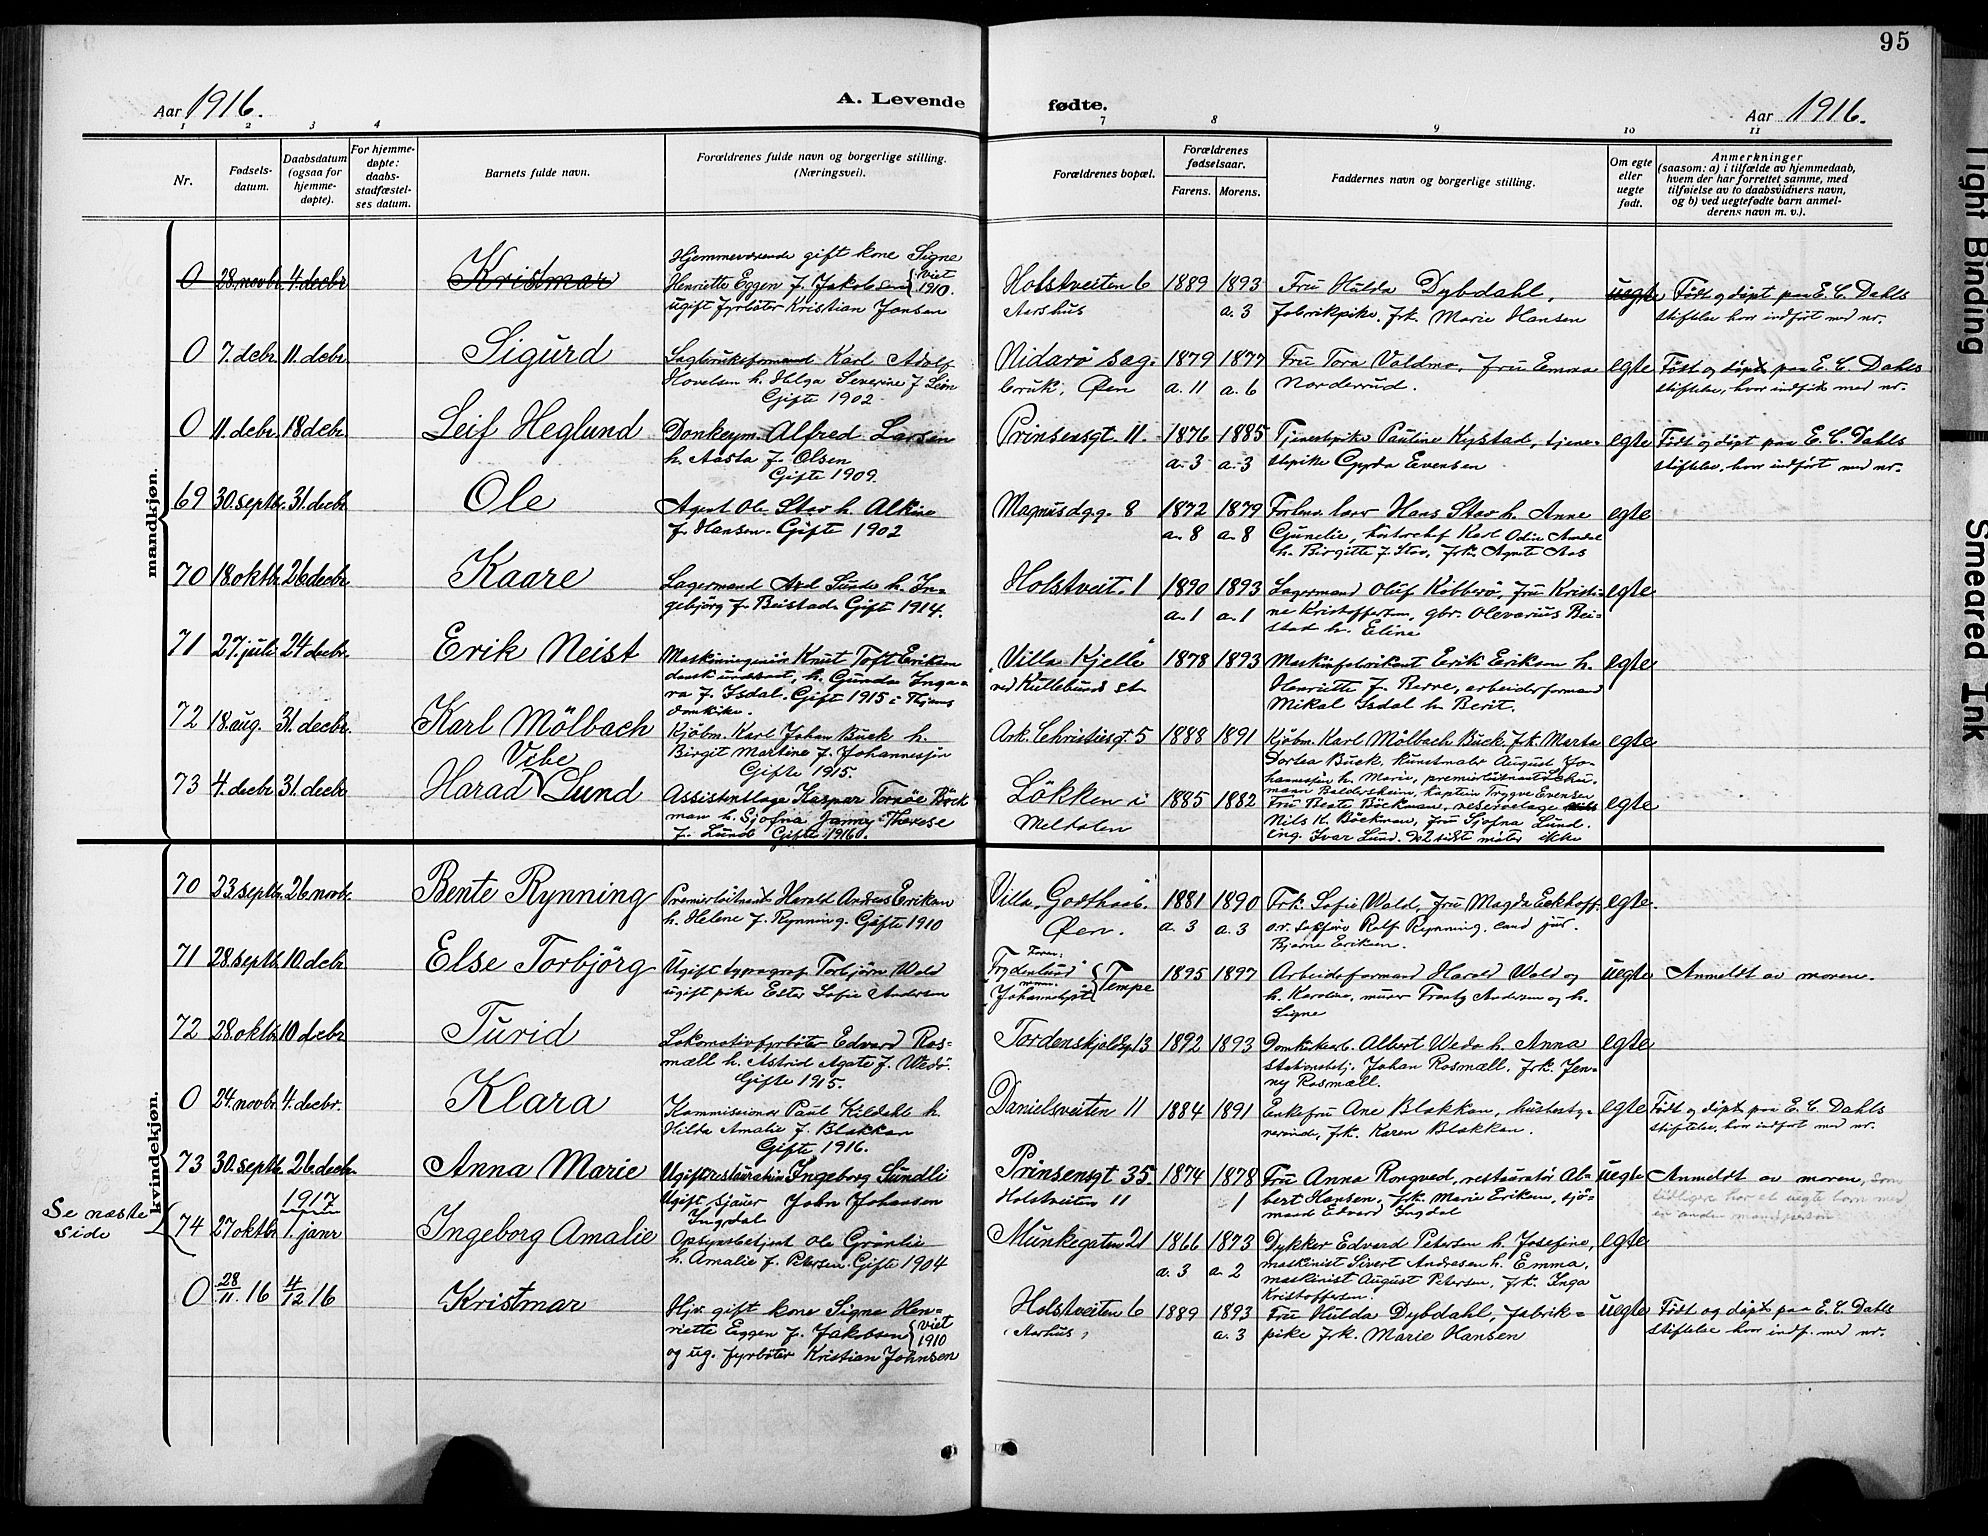 95
Aar 1916.
A. Levende fødte.
Aar 1916.
1 2 3 4 7 8 9 10 11
Nr.
Fødsels-
datum.
Daabsdatum
(ogsaa for
hjemme-
døpte).
For hjemme-
døpte:
daabs-
stadfæstel-
ses datum.
Barnets fulde navn.
Forældrenes fulde navn og borgerlige stilling.
(Næringsvei).
Forældrenes bopæl.
Forældrenes
fødselsaar.
Farens. Morens.
Faddernes navn og borgerlige stilling.
Om egte
eller
uegte
født.
Anmerkninger
(saasom: a) i tilfælde av hjemmedaab,
hvem der har forrettet samme, med
tilføielse av to daabsvidners navn,
og b) ved uegtefødte barn anmel-
derens navn m. v.).
mandkjøn.
0 28. novbr. 4. decbr Kristmar
Hjemmeværende gift kone Signe
Henriette Eggen f. Jakobsen (viet 1910.
ugift fyrbøter Kristian Jonsen
Holstveiten 6
Aarhus
1889 1893
a. 3
Fru Hulda Dybdahl,
Fabrikpike, frk. Marie Hansen
uegte
Født og døpt paa E. C. Dahls
stiftelse hvor indført med nr.
0 7. decbr 11. decbr. Sigurd
Sagbruksformand Karl Adolf
Hovelsen h. Helga Severine f. Lein
Gifte 1902
Nidarø sag-
bruk, Øen
1879 1877
a. 11 a. 6
Fru Tora Valdmo, fru Emma
Norderud.
egte
Født og døpt paa E. C. Dahls
stiftelse, hvor indført med nr.
0 11. decbr. 18 decbr. Leif Heglund
Donkeym. Alfred Larsen
h. Aasta f. Olsen
Gifte 1909.
Prinsensgt. 11.
1876 1885
a. 3 a. 3
Tjenestepike Pauline Rystad, tjene-
stepike Gyda Evensen
egte
Født og døpt paa E. C. Dahls
stiftelse, hvor indført med nr.
69 30. septbr. 31. decbr Ole
Agent Ole Stav h. Alkine
f. Hansen. Gifte 1902
Magnusdg.g. 8
1872 1879
a. 8 a. 8
Hans Stav h. Anne
Gunelie, kontorchef Karl Odin
h. Birgitte f. Stav, frk. Agnete Aas
egte
70 18. oktbr. 26 decbr. Kaare
Lagermand Axel Sunde h. In-
gebjørg f. Beistad. Gift 1914.
Holstveit. 1
1890 1893
a. 1 a. 1
Lagermand Oluf Kobberø, fru Kristi-
ne Kristoffersen, gbr. Olevarius Bei-
stad h. Eline
egte
71 27. juli 24 decbr. Erik Neist
Maskiningeniør Knut Toft Eriksen
dansk undersaat, h. Gunda Inga-
ra f. Isdal. Gift 1915 i Thjems
domkirke.
"Villa Kjelle"
ved Kullebunds st.
1878 1893
Maskinfabrikant Erik Eriksen h.
Henriette f. Berre, arbeidsformand
Mikal Isdal h. Berit.
egte
72 18. aug. 31. decbr. Karl Mölbach
Kjøbm. Karl Johan Buck h.
Birgit Martine f. Johannessen
Gifte 1915.
Ark. Christiesgt. 5
1888 1891
Kjøbm. Karl Mölbach Buck, frk. Marta
Dortea Buck, kunstmaler August Jo-
hannessen h. Marie, premierløitnant
Baldersheim, kaptein Trygve Evensen
egte
73 4. decbr 31. decbr Harad Vibe Lund
Assistentlæge Kaspar Tornöe Böck
man h. Sjofna Janny Therese
f. Lund. Gifte 1916.
Løkken i
Meldalen
1885 1882
Fru Beate Böckman, reservelæge
Nils K. Böckman, fru Sjofna Lund
ing. Ivar Lund. Det sidste møter ikke
egte
kvindekjøn.
70 23. septbr. 26 novbr. Bente Rynning
Premierløitnant Harald Andreas Eriksen
h. Helene f. Rynning. Gifte 1910
Villa "Godthaab"
Øen.
1881 1890
a. 3 a. 3
Frk. Sofie Wold, fru Magda Eckhoff,
o.r. sakfører Rolf Rynning, cand jur.
Bjarne Eriksen.
egte.
71 28. septbr. 10. decbr Else Torbjörg
Ugift typograf Torbjørn Wold
ugift pike Ester Sofie Andersen
Faren:
"Frydenlund"
moren:
"Johannelyst" } Tempe
1895 1897
Arbeidsformand Harald Wold og
h. Karoline, murer Andersen og h.
Signe
uegte
Anmeldt av moren.
72 28. oktbr 10 decbr Turid
Lokomotivfyrbøter Edvard Ros-
mæll h. Astrid Agate f. Wedø.
Gifte 1915.
Tordenskjoldsg. 13
1892 1893
Domkirkearb. Albert Wedø h. Anna
stationsbetj. Johan Rosmæll, frk. Jen-
ny Rosmæll.
egte
0 24. novbr. 4. decbr. Klara
Kommissionær Paul Kildahl h.
Hilda Amalie f. Blekkan
Gifte 1916.
Danielsveiten 11
1884 1891
Enkefru Ane Blekkan, husbesty-
rerinde, frk. Karen Blekkan.
egte
Født og døpt paa E. C. Dahls
stiftelse, hvor indført med nr.
73 30. septbr. 26 decbr. Anna Marie
Ugift restauratrice Ingeborg Sundli
Ugift sjauer John Johansen
Ingdal
Prinsensgt 35
Holstveiten 11
1874 1878
1
Fru Anna Rongved, restauratør Al-
bert Hansen, frk. Marie Eriksen, sjø-
mand Edvard Ingdal
uegte
Anmeldt av moren, som
tidligere har et uegte barn med
en anden mandsperson
Se næste
side
74 27 oktbr 1917 1. janr Ingeborg Amalie
Opsynsbetjent Ole Grønlie
h. Amalie f. Petersen. Gift 1904
Munkegaten 21
1866 1873
a. 3 a. 2
Dykker Edvard Petersen h. Josefine,
maskinist Sivert Andresen h. Emma,
maskinist August Petersen, frk. Inga
Kristoffersen.
egte
0 28/11 16 4/12 16 Kristmar
Hjv. gift kone Signe Hen-
riette Eggen f. Jakobsen (viet 1910
og ug. fyrbøter Kristian Johnsen
Holstveiten 6
(Aarhus)
1889 1893
a. 3
Fru Hulda Dybdahl, fabrik-
pike frk. Marie Hansen
uegte
Født og døpt paa E. C. Dahls
stiftelse hvor indf. med nr.
Tight Binding
Smeared Ink